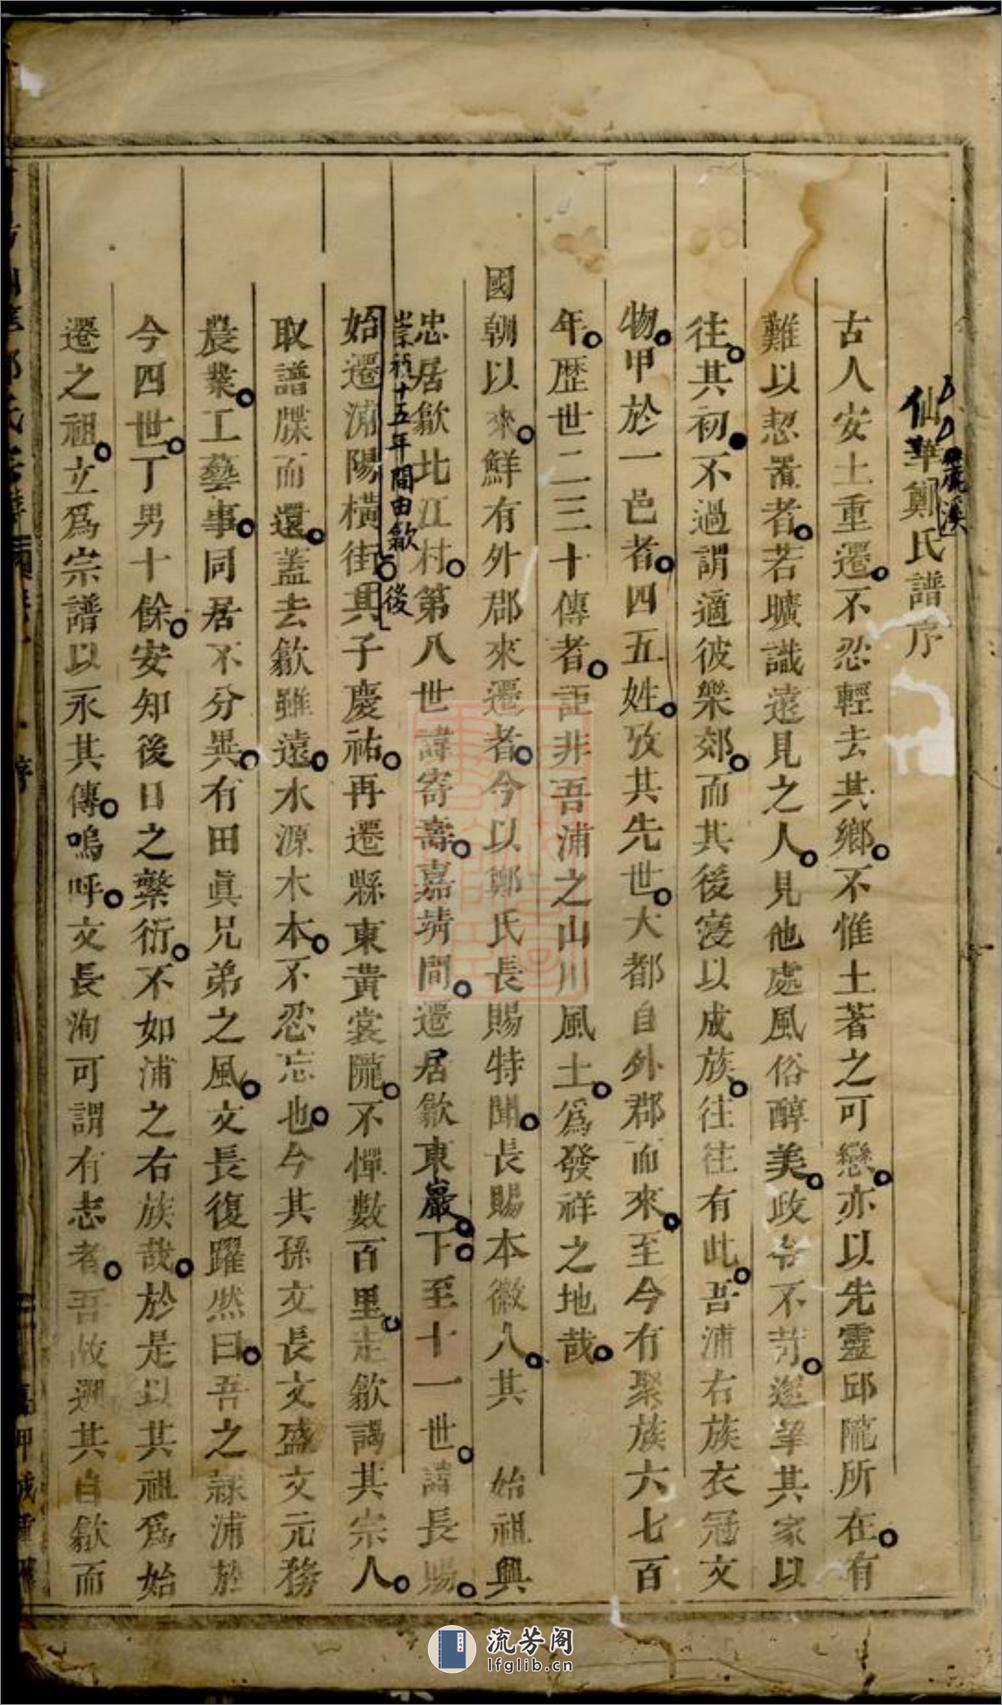 仙華鄭氏譜序
古人安土重遷不忍輕去其鄉不惟土著之可戀亦以先靈邱隴所在有
難以恝置者若曠識遠見之人見他處風俗醇美政令不苛遂挈其家以
往其初不過謂適彼樂郊而其後寖以成族往往有此吾浦右族衣冠文
物甲於一邑者四五姓攷其先世大都自外郡而來至今有聚族六七百
年歷世二三十傳者詎非吾浦之山川風土為發祥之地哉
國朝以來鮮有外郡來遷者今以鄭氏長賜特聞長賜本徽人其 始祖興
忠居歙北江村第八世諱寄壽嘉靖間遷居歙東巖下至十一世諱長賜
崇禎十五年間由歙 後
始遷浦陽橫街其子慶祐再遷縣東黃裳隴不憚數百里走歙謁其宗人
取譜牒而還蓋去歙雖遠水源木本不忍忘也今其孫文長文盛文元務
農業工藝事同居不分異有田眞兄弟之風文長復躍然曰吾之隸浦於
今四世丁男十餘安知後日之繁衍不如浦之右族哉於是以其祖為始
遷之祖立為宗譜以永其傳嗚呼文長洵可謂有志者吾故遡其自歙而
流芳阁
lfglib.cn